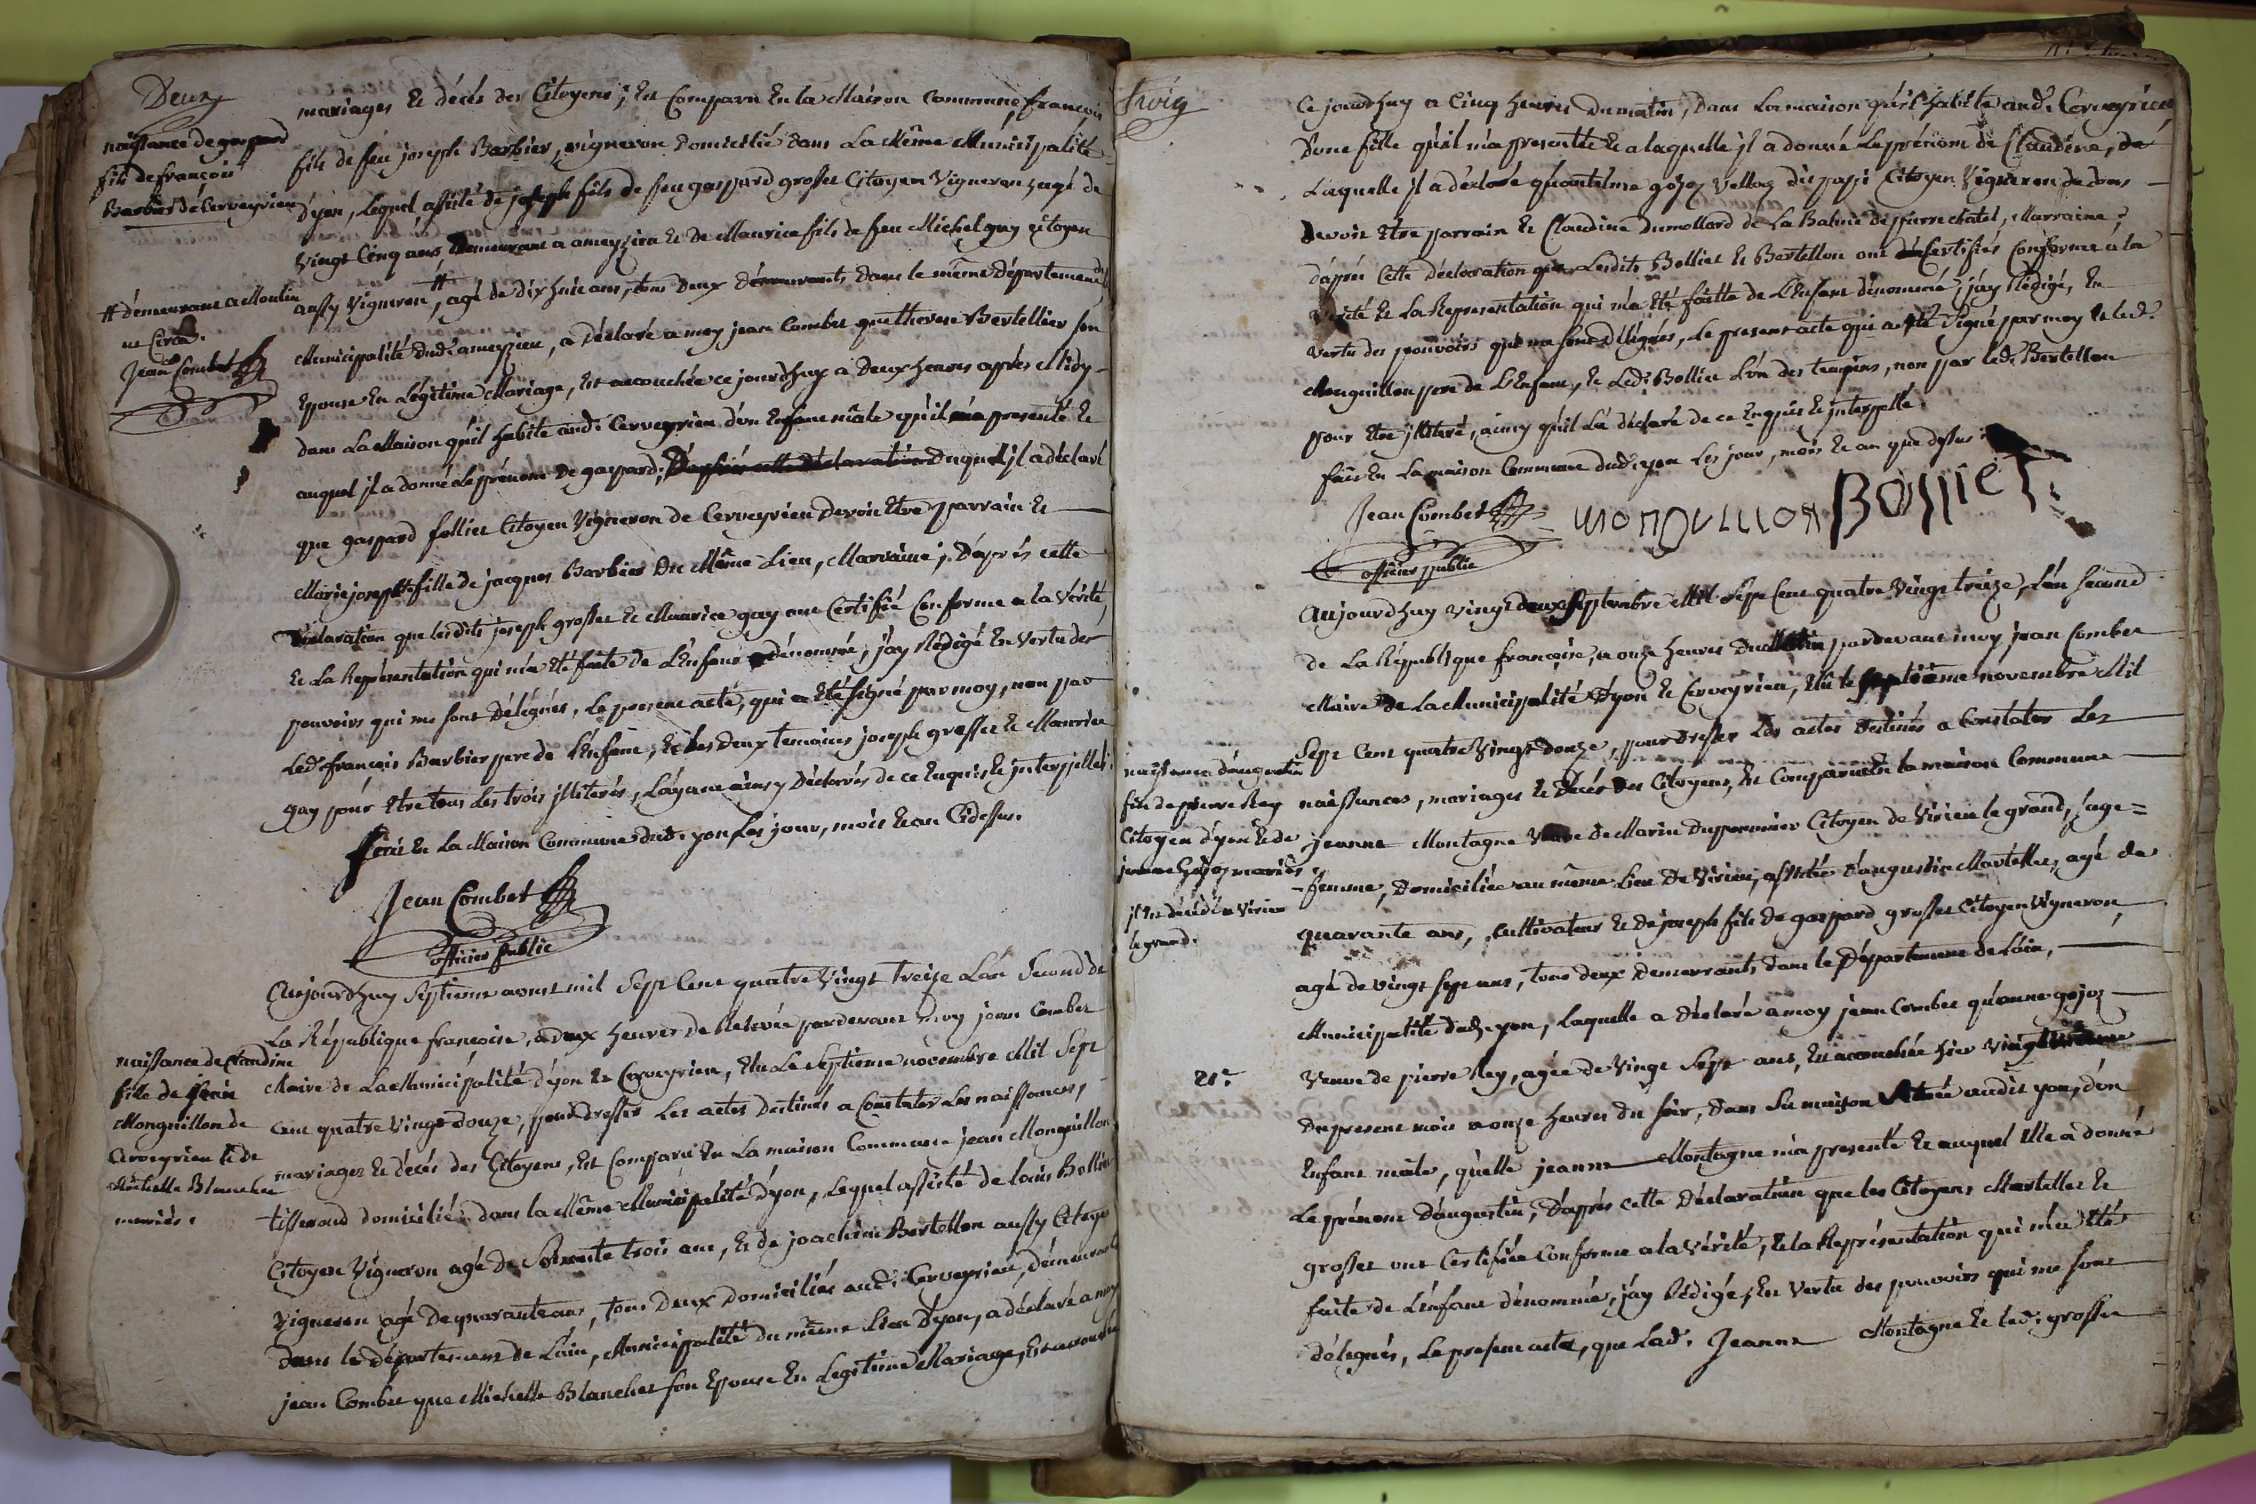 Deux
mariages et décés des Citoyens; Est Comparu En la Maison Commune, françois
naissance de gaspard
fils de françois
Barbier de Cerveyrieu
fils de feu joseph Barbier, vigneron domicilié dans La Même Municipalité
d'yon, Lequel assisté de joseph fils de feu gaspard grosset Citoyen Vigneron, agé de
vingt Cinq ans demeurant a ameyzieu et de Maurice fils de feu Michel guy citoyen
aussy Vigneron, # agé de dix huit ans, tous deux démeurants dans le même département
# démeurant a Moulin
Jean Combet
Municipalité dud. ameyzieu, a Déclaré a moy jean Combet que therese Bertellier son
Epouse En Légitime Mariage, Est accouchée ce jourdhuy a Deux heures après Midy
dans La Maison qu'il habite aud. Cerveyrieu d'un Enfant mâle qu'il m'a presenté et
auquel jl a donné le prénom de gaspard; D'après cette Déclaration Duquel jl a déclaré
que gaspard follier Citoyen Vigneron de Cerveyrieu devoir Etre parrain et
Marie josephte fille de jacques Barbier du Même Lieu, Marraine; D'après cette
Déclaration que lesdits joseph grosset et Maurice guy ont Certifié Conforme a la Vérité,
et La Représentation qui m'a Eté faite de L'Enfant dénommé, j'ay Rédigé En Vertu des
pouvoirs qui me sont Délégués, Le present acte, qui a Eté signé par moy, non par
Led. françois Barbier pere de L'Enfant, et Les deux temoins joseph grosset et Maurice
guy pour Etre tous Les trois jlliterés, L'ayant ainsy Déclarés de ce Enquis et jnterpellés.
fait En La Maison Commune dud. yon Les jour, mois et an Cidessus.
Jean Combet
officier public
Aujourdhuy Septieme aoust mil Sept Cent quatre Vingt treize L'an Second de
La République françoise, a deux heures de Relevée pardevant moy jean Combet
naissance de Claudine
fille de jean
Monguillon de
Cerveyrieu et de
Michelle Blanchet
mariés.
Maire de La Municipalité d'yon et Cerveyrieu, Elu Le Septieme novembre Mil Sept
Cent quatre Vingt douze, pour dresser Les actes Destinés a Constater Les naissances,
mariages et décés des Citoyens, Est Comparu En La maison Commune jean Monguillon
tisserand domicilié dans la Même Municipalité d'yon, Lequel assisté de louis Bollier
Citoyen Vigneron agé de Soixante trois ans, et de joachim Bertellon aussy Citoyen
Vigneron agé de quarante ans, tous Deux Domiciliés aud. Cerveyrieu, démeurants
dans le département de L'ain, Municipalité du même Lieu d'yon, a déclaré a moy
jean Combet que Michelle Blanchet son Epouse En Legitime Mariage, Est accouchée
trois
Ce jourdhuy a Cinq heures du matin, Dans La maison qu'il habite aud. Cerveyrieu
d'une fille qu'il m'a presentée et a laquelle jl a donné Le prénom de Claudine, de
Laquelle jl a déclaré Citoyen Vigneron
devoir Etre parrain et Claudine Dumollard de La Balme de pierre chatel, Marraine;
d'après Cette Déclaration que Lesdits Bollier et Bertellon ont Certifiés Conforme a la
Vérité et La Représentation qui m'a Eté faitte de L'Enfant dénommé, j'ay Rédigé, En
Vertu des pouvoirs qui me sont Délégués, Le present acte qui a Eté Signé par moy et led.
Monguillon pere de L'Enfant, et Led. Bollier L'un des temoins, non par led. Bertellon
pour Etre jlliteré, ainsy qu'il L'a déclaré de ce Enquis et jnterpellé.
fait En La maison Commune dud. yon Les jour, mois et an que dessus.
Jean Combet
MONGUILLON BOLLIET
officier public
Aujourdhuy vingt deux Septembre Mil Sept Cent quatre Vingt treize, L'an Second
de La République françoise, a onze heures du Matin pardevant moy jean Combet
Maire de La Municipalité d'yon et Cerveyrieu, Elû le Septième novembre Mil
Sept Cent quatre Vingt Douze, pour dresser Les actes destinés a Constater Les
naissance d'augustin
fils de pierre Rey
Citoyen d'yon et de
mariés
jl Est décédé a Virieu
le grand.
naissances, mariages et Décés des Citoyens, Est Comparu En la maison Commune
jeanne Montagne Veuve de Marin Citoyen de Virieu le grand, sage=
-femme, Domiciliée au même Lieu de Virieu, assistée d'augustin Martellet, agé de
quarante ans, Cultivateur et de joseph fils de gaspard grosset Citoyen Vigneron,
agé de vingt Sept ans, tous deux demeurants dans le Département de L'ain,
Municipalité dud. yon, Laquelle a Déclaré a moy jean Combet qu'anne gojoz
21e.
Veuve de pierre Rey, agée de Vingt Sept ans, Est accouchée hier Vingt unieme
du present mois a onze heures du soir, dans sa maison située audit yon, d'un
Enfant mâle, qu'elle jeanne Montagne m'a presenté et auquel Elle a donné
Le prénom d'augustin, D'après cette Déclaration que les Citoyens Martellet et
grosset ont Certifiée Conforme a la Vérité, et la Représentation qui m'a Eté
faite de L'Enfant dénommé, j'ay Rédigé, En Vertu des pouvoirs qui me sont
délégués, Le present acte, que Lad. Jeanne Montagne et led. grosset